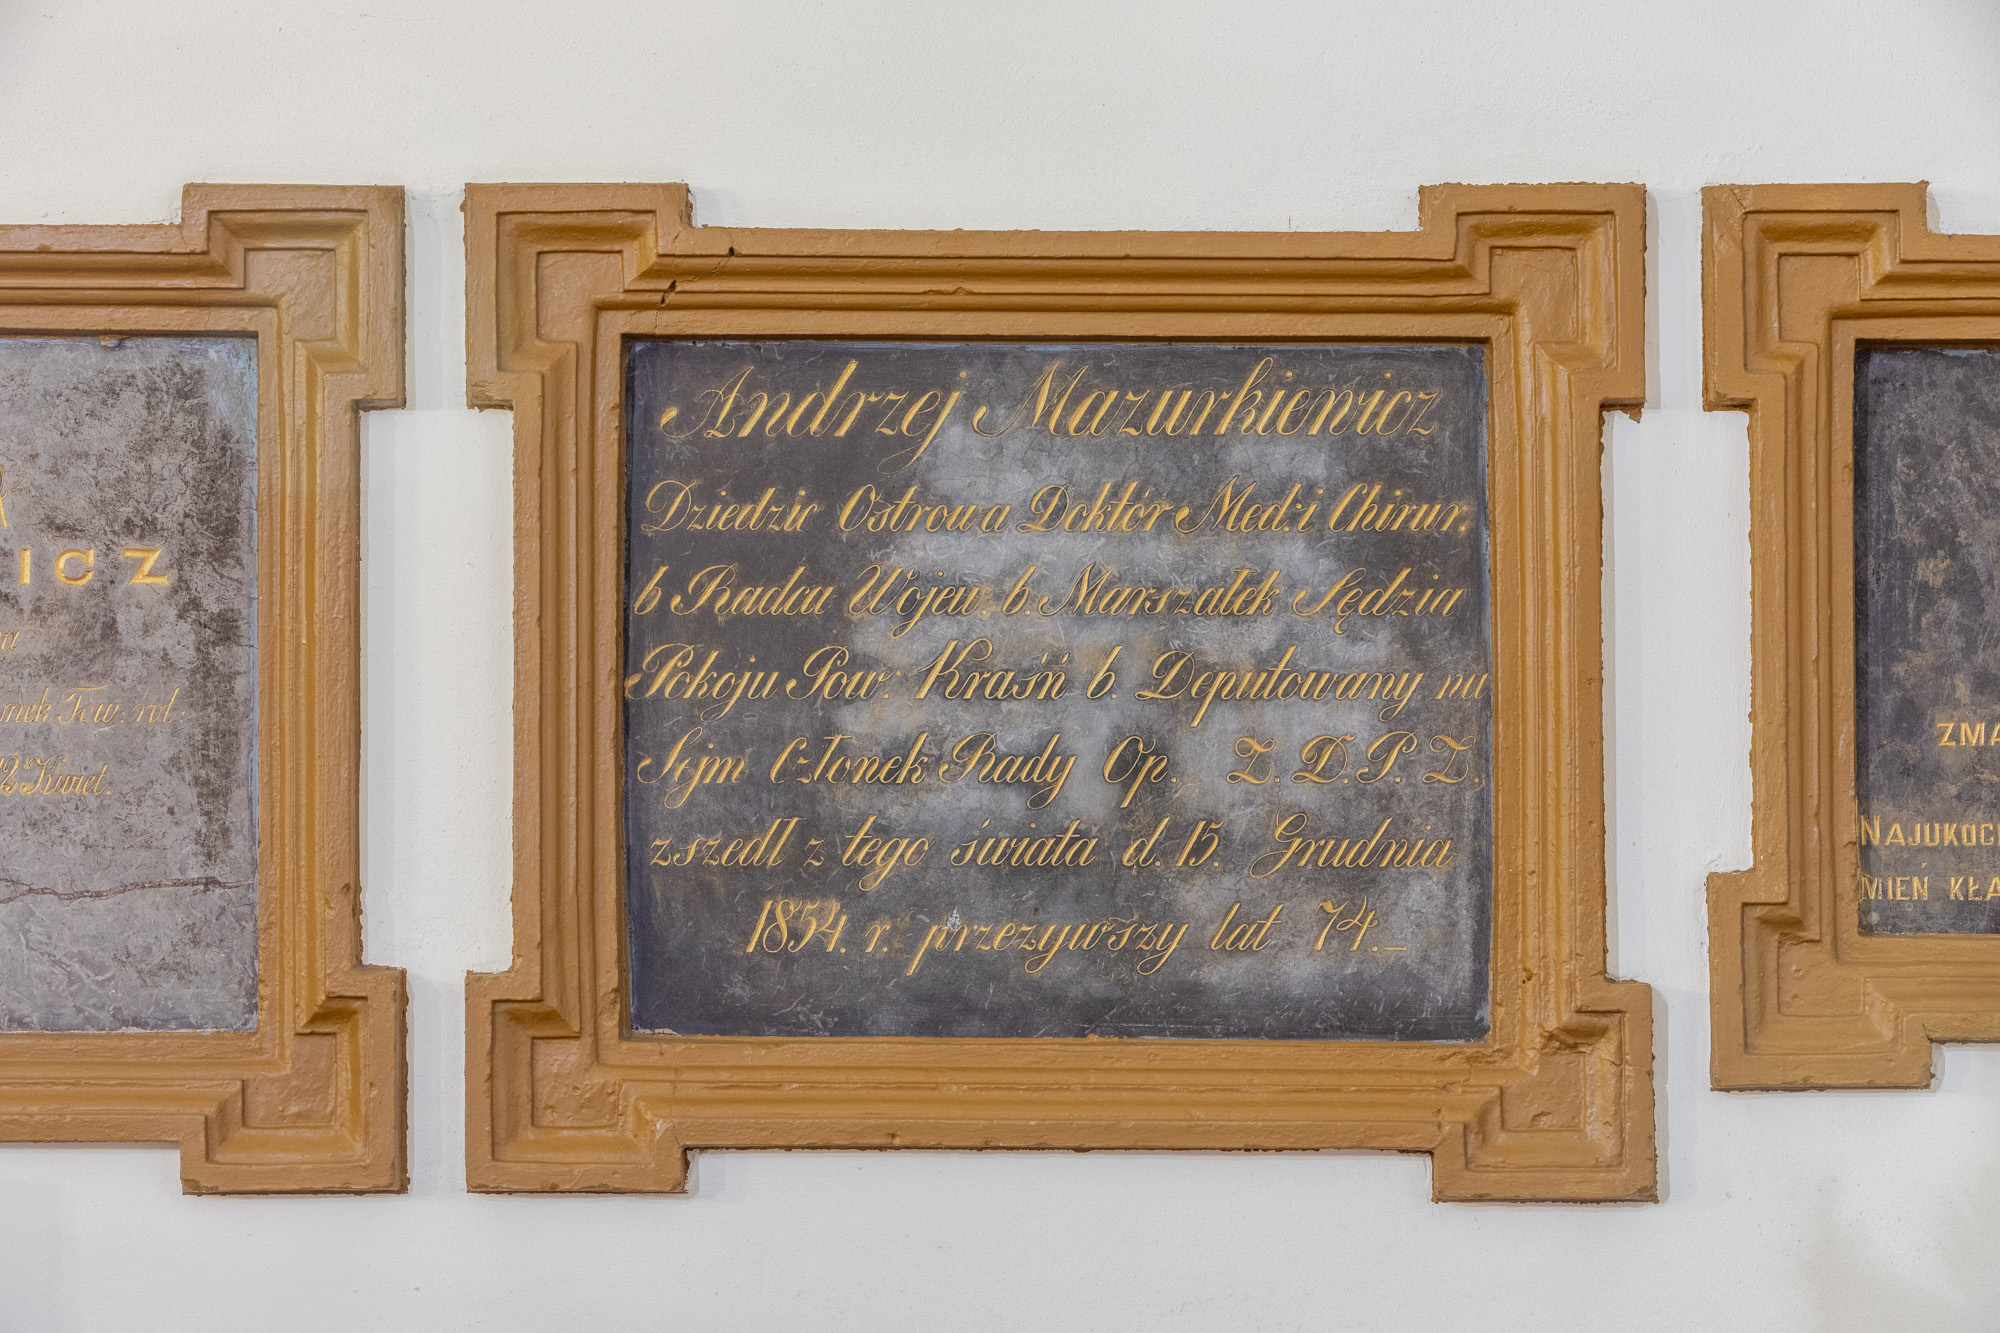 ICZ
nek Tow: rol:
12 Kwiet.
Andrzej Mazurkiewicz
Dziedzic Ostrowa Doktór Med: i Chirur.
b Radca Wojew. b. Marszałek Sędzia
Pokoju Pow: Kraśń b. Deputowany na
Sejm Członek Rady Op. Z. D. P. Z.
zszedł z tego świata d. 15. Grudnia
1854. r. przeżywszy lat 74._
ZMA
NAJUKOC
MIEŃ KŁA